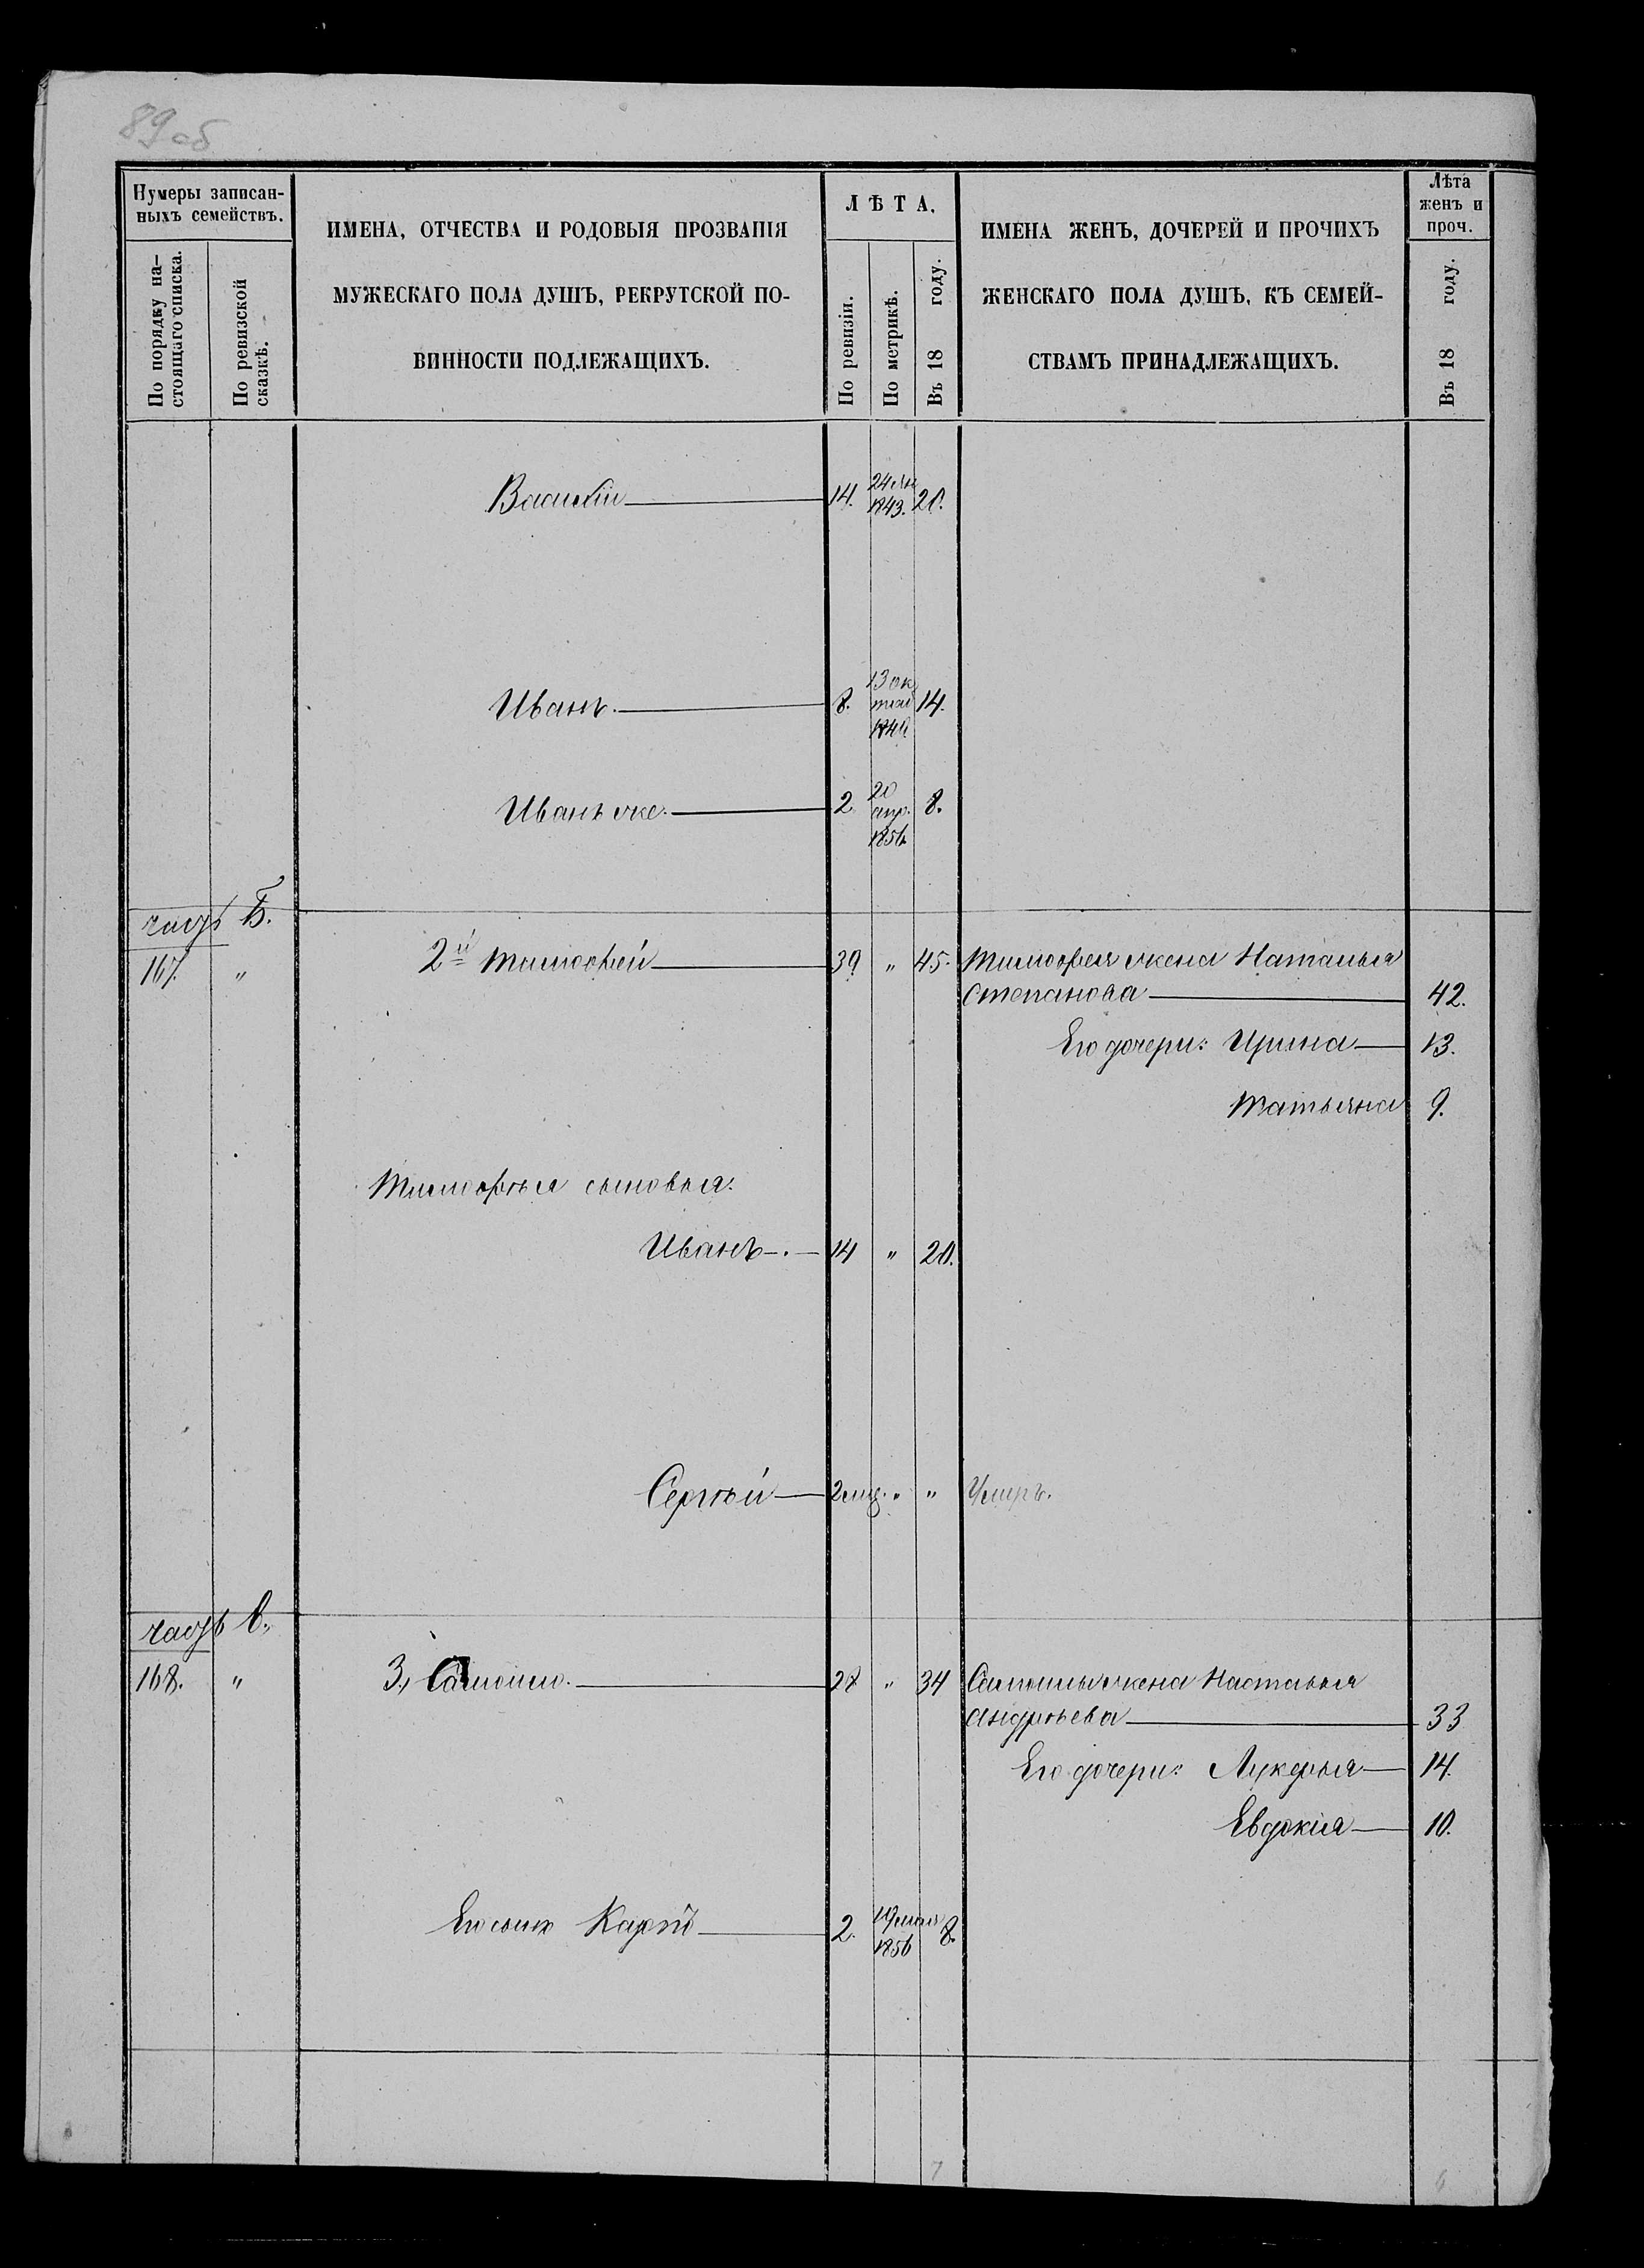 89 об
Нумеры записан-
ныхъ семействъ.
По порядку на-
стоящаго списка.
По ревизской
сказкѣ.
ИМЕНА, ОТЧЕСТВА И РОДОВЫЯ ПРОЗВАНІЯ
МУЖЕСКАГО ПОЛА ДУШЪ, РЕКРУТСКОЙ ПО-
ВИННОСТИ ПОДЛЕЖАЩИХЪ.
ЛѢТА.
По ревизіи.
По метрикѣ.
Въ 18 году.
ИМЕНА ЖЕНЪ, ДОЧЕРЕЙ И ПРОЧИХЪ
ЖЕНСКАГО ПОЛА ДУШЪ, КЪ СЕМЕЙ-
СТВАМЪ ПРИНАДЛЕЖАЩИХЪ.
Лѣта
женъ и
проч.
Въ 18 году.
Василій 14. 24 1843. 20.
Иванъ. 8. 13 ок
14.
Иванъ же. 2. 20
апр. 8.
1856
часть Б.
167. " 2й Тимофей 39 " 45. Тимофея жена Наталья
Степанова 42.
Его дочери: Ирина 13.
Татьяна 9.
Тимофѣя сыновья:
Иванъ 14 " 20.
Сергѣй 2 мц. " " Умеръ.
часть В.
168. " 3, Самоило. 28 " 34 Самоилы жена Настасья
Андрѣева 33
Его дочери: Лукерья 14.
Евдокія 10.
Его сынъ Карпъ 2. 19 мая 8.
1856